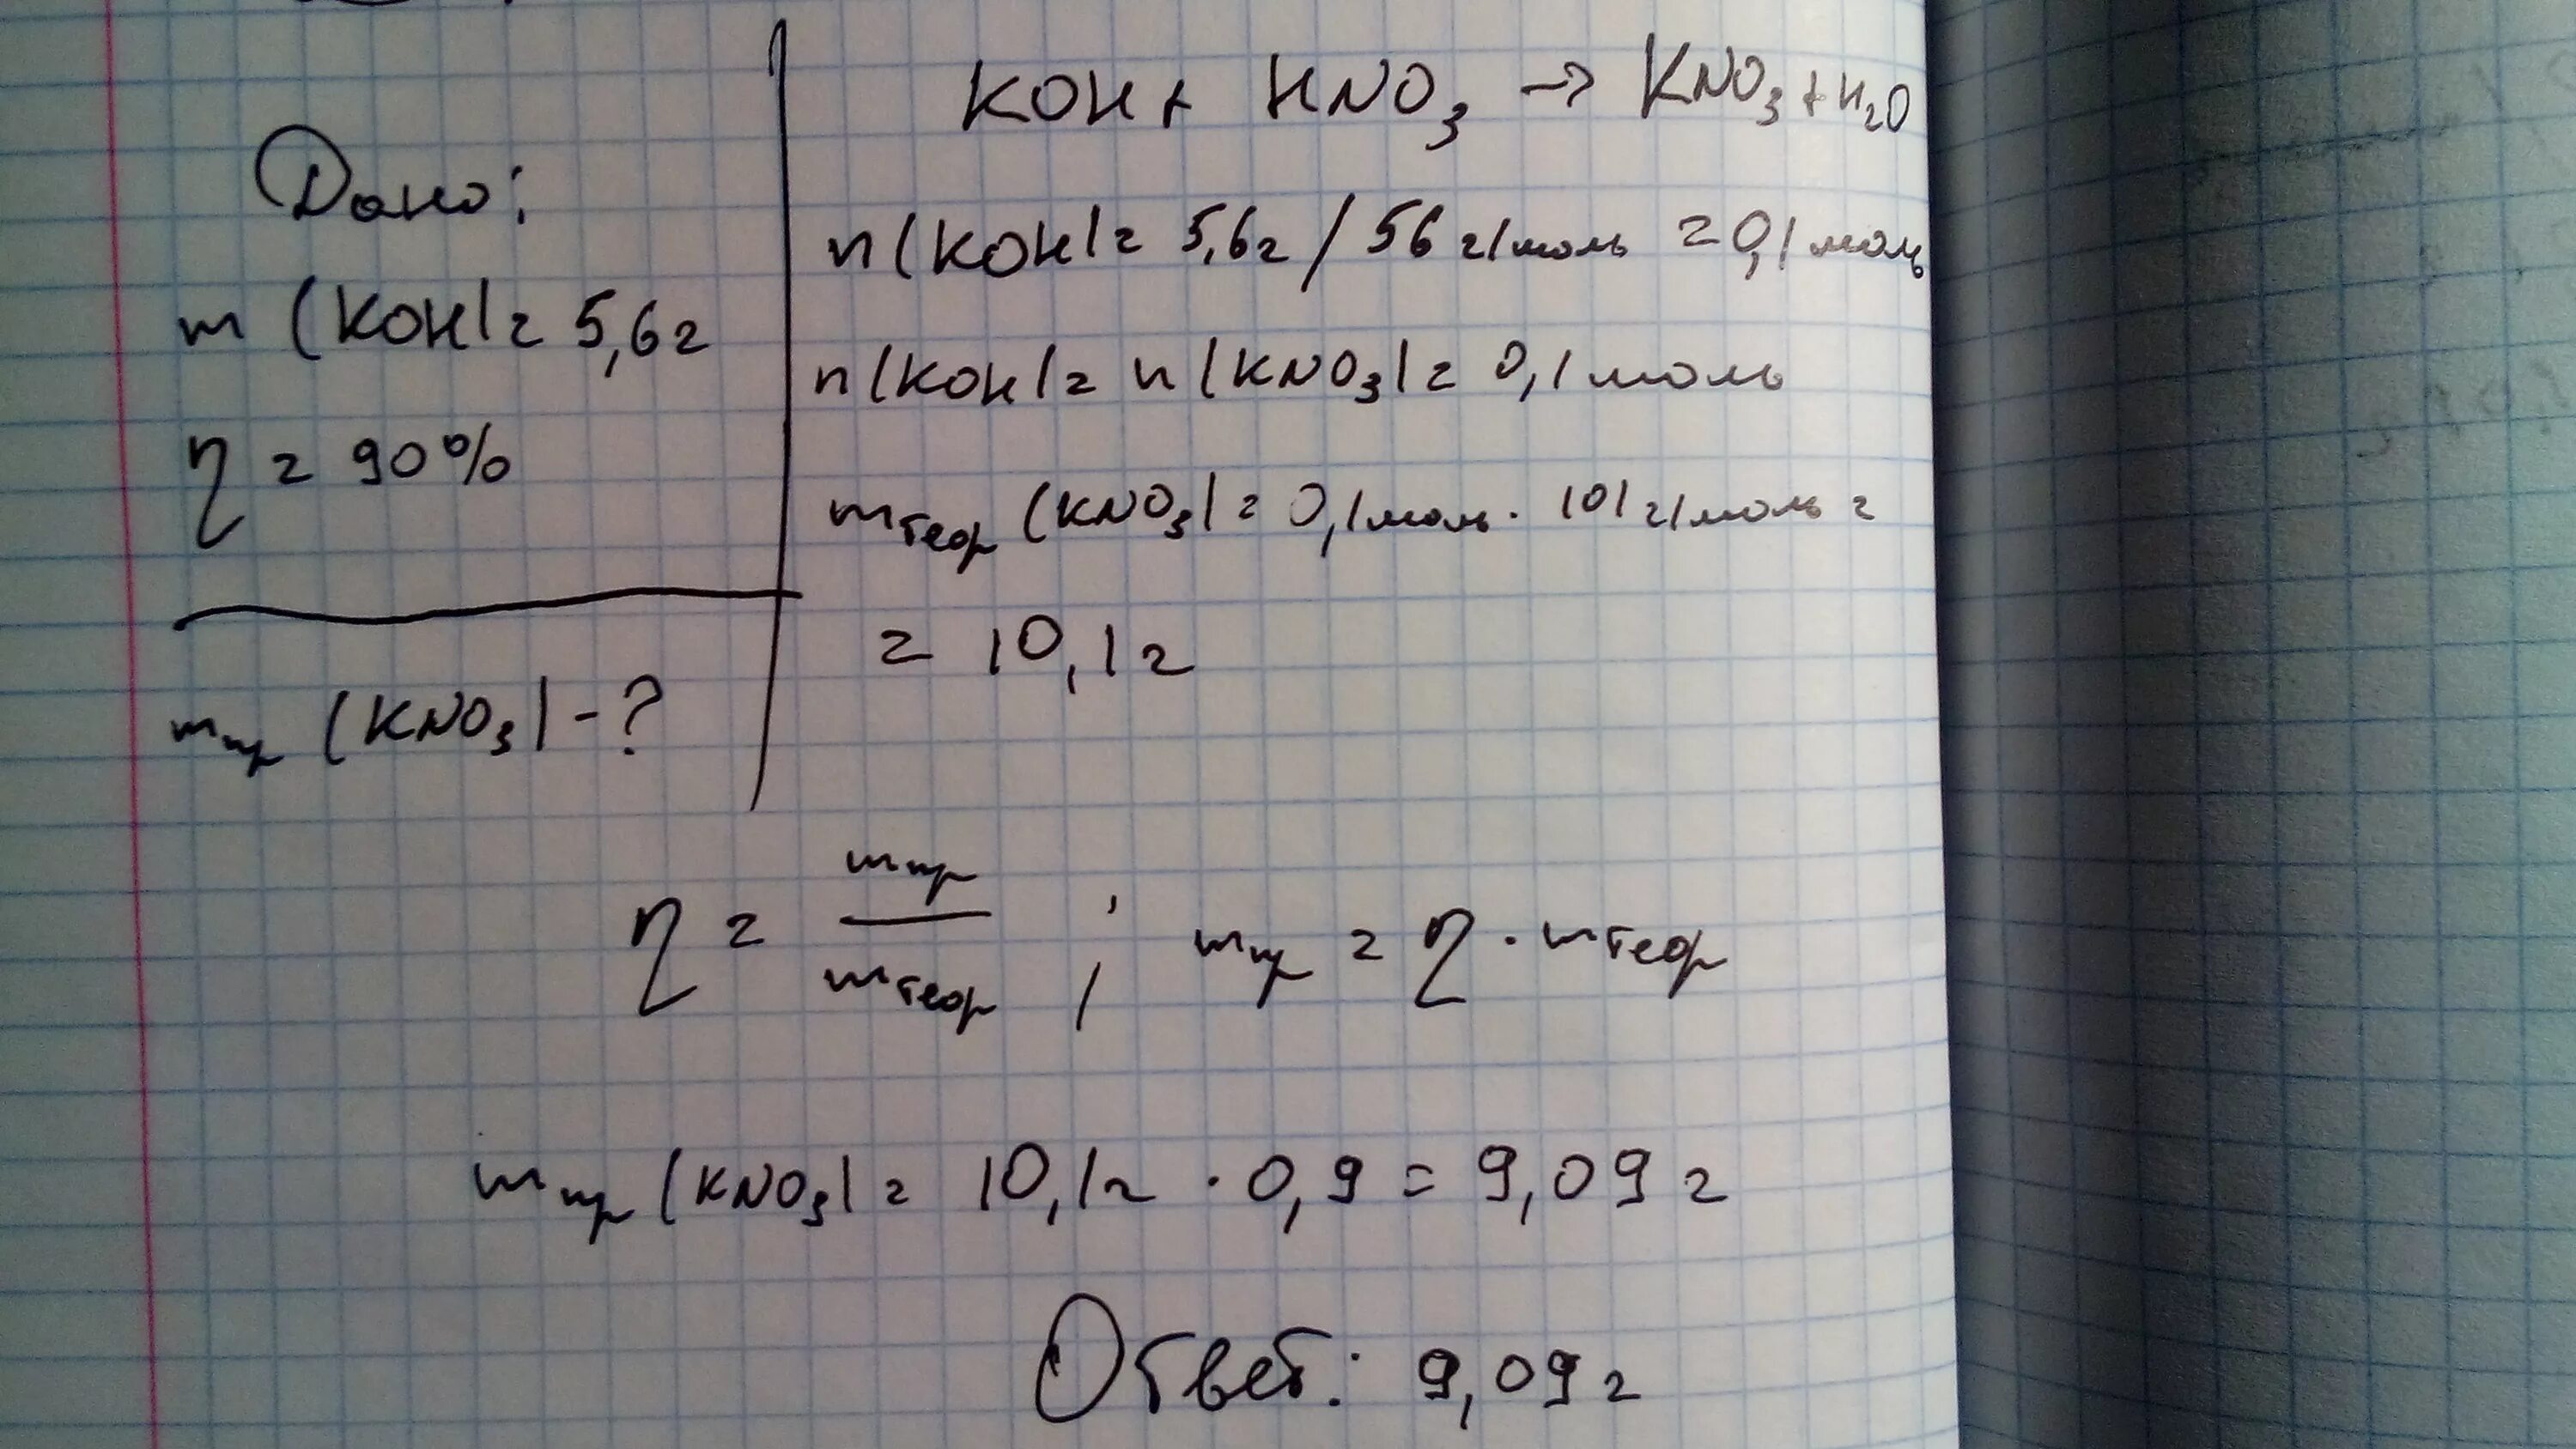 Дано:
m (KOH) = 5,6 г
η = 90%
m пр (KNO₃) - ?
KOH + HNO₃ → KNO₃ + H₂O
n(KOH) = 5,6г / 56 г/моль = 0,1 моль
n(KOH) = n(KNO₃) = 0,1 моль
m теор (KNO₃) = 0,1 моль · 101 г/моль =
= 10,1 г
η = m пр / m теор ; m пр = η · m теор
m пр (KNO₃) = 10,1г · 0,9 = 9,09 г
Ответ: 9,09 г